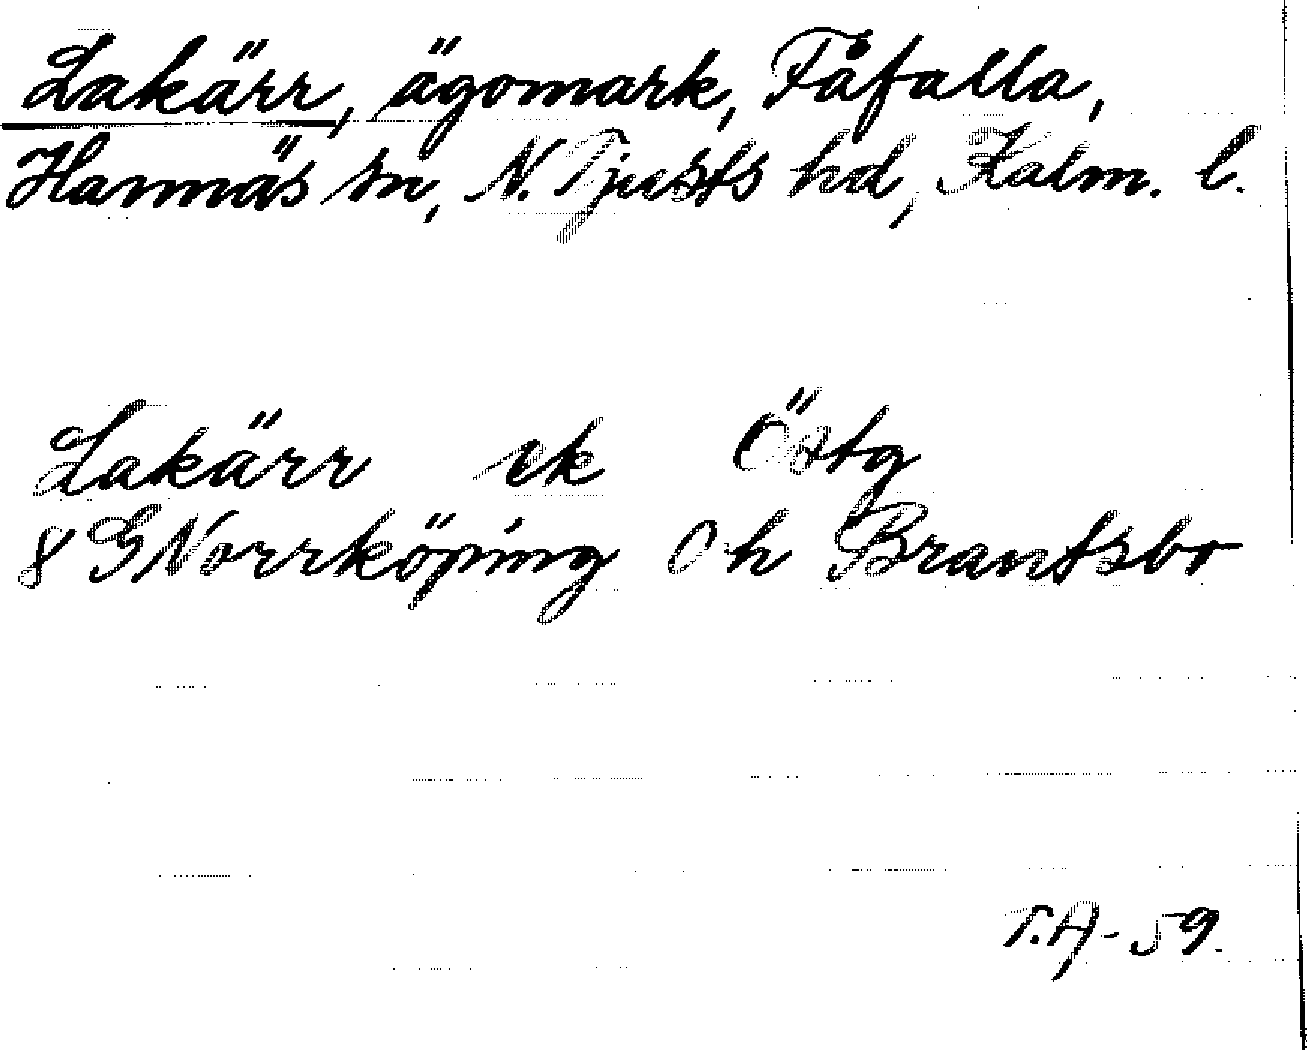 Lakärr, ägomark, Fåfalla,
Hannäs sn, N. Tjusts hd, Kalm. l.
Lakärr ek Östg
8 G Norrköping Ch Brantsbo
T.A-59.